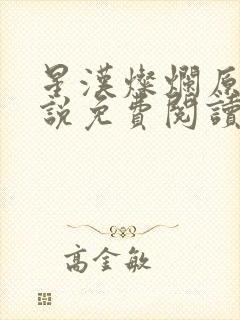 星漢燦爛原
說免費閱讀
高金敏